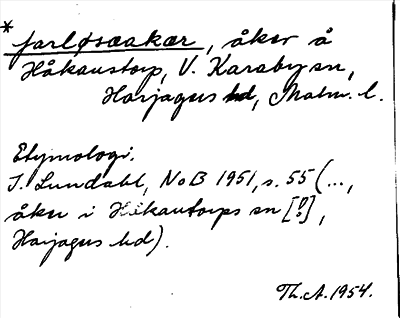 * jarløsaakær, åker å
Håkanstorp, V. Karaby sn,
Harjagers hd, Malm. l.
Etymologi.
I. Lundahl, NoB 1951, s. 55 (...,
åker i Håkantorps sn [!],
Harjagers hd).
Th.A. 1954.